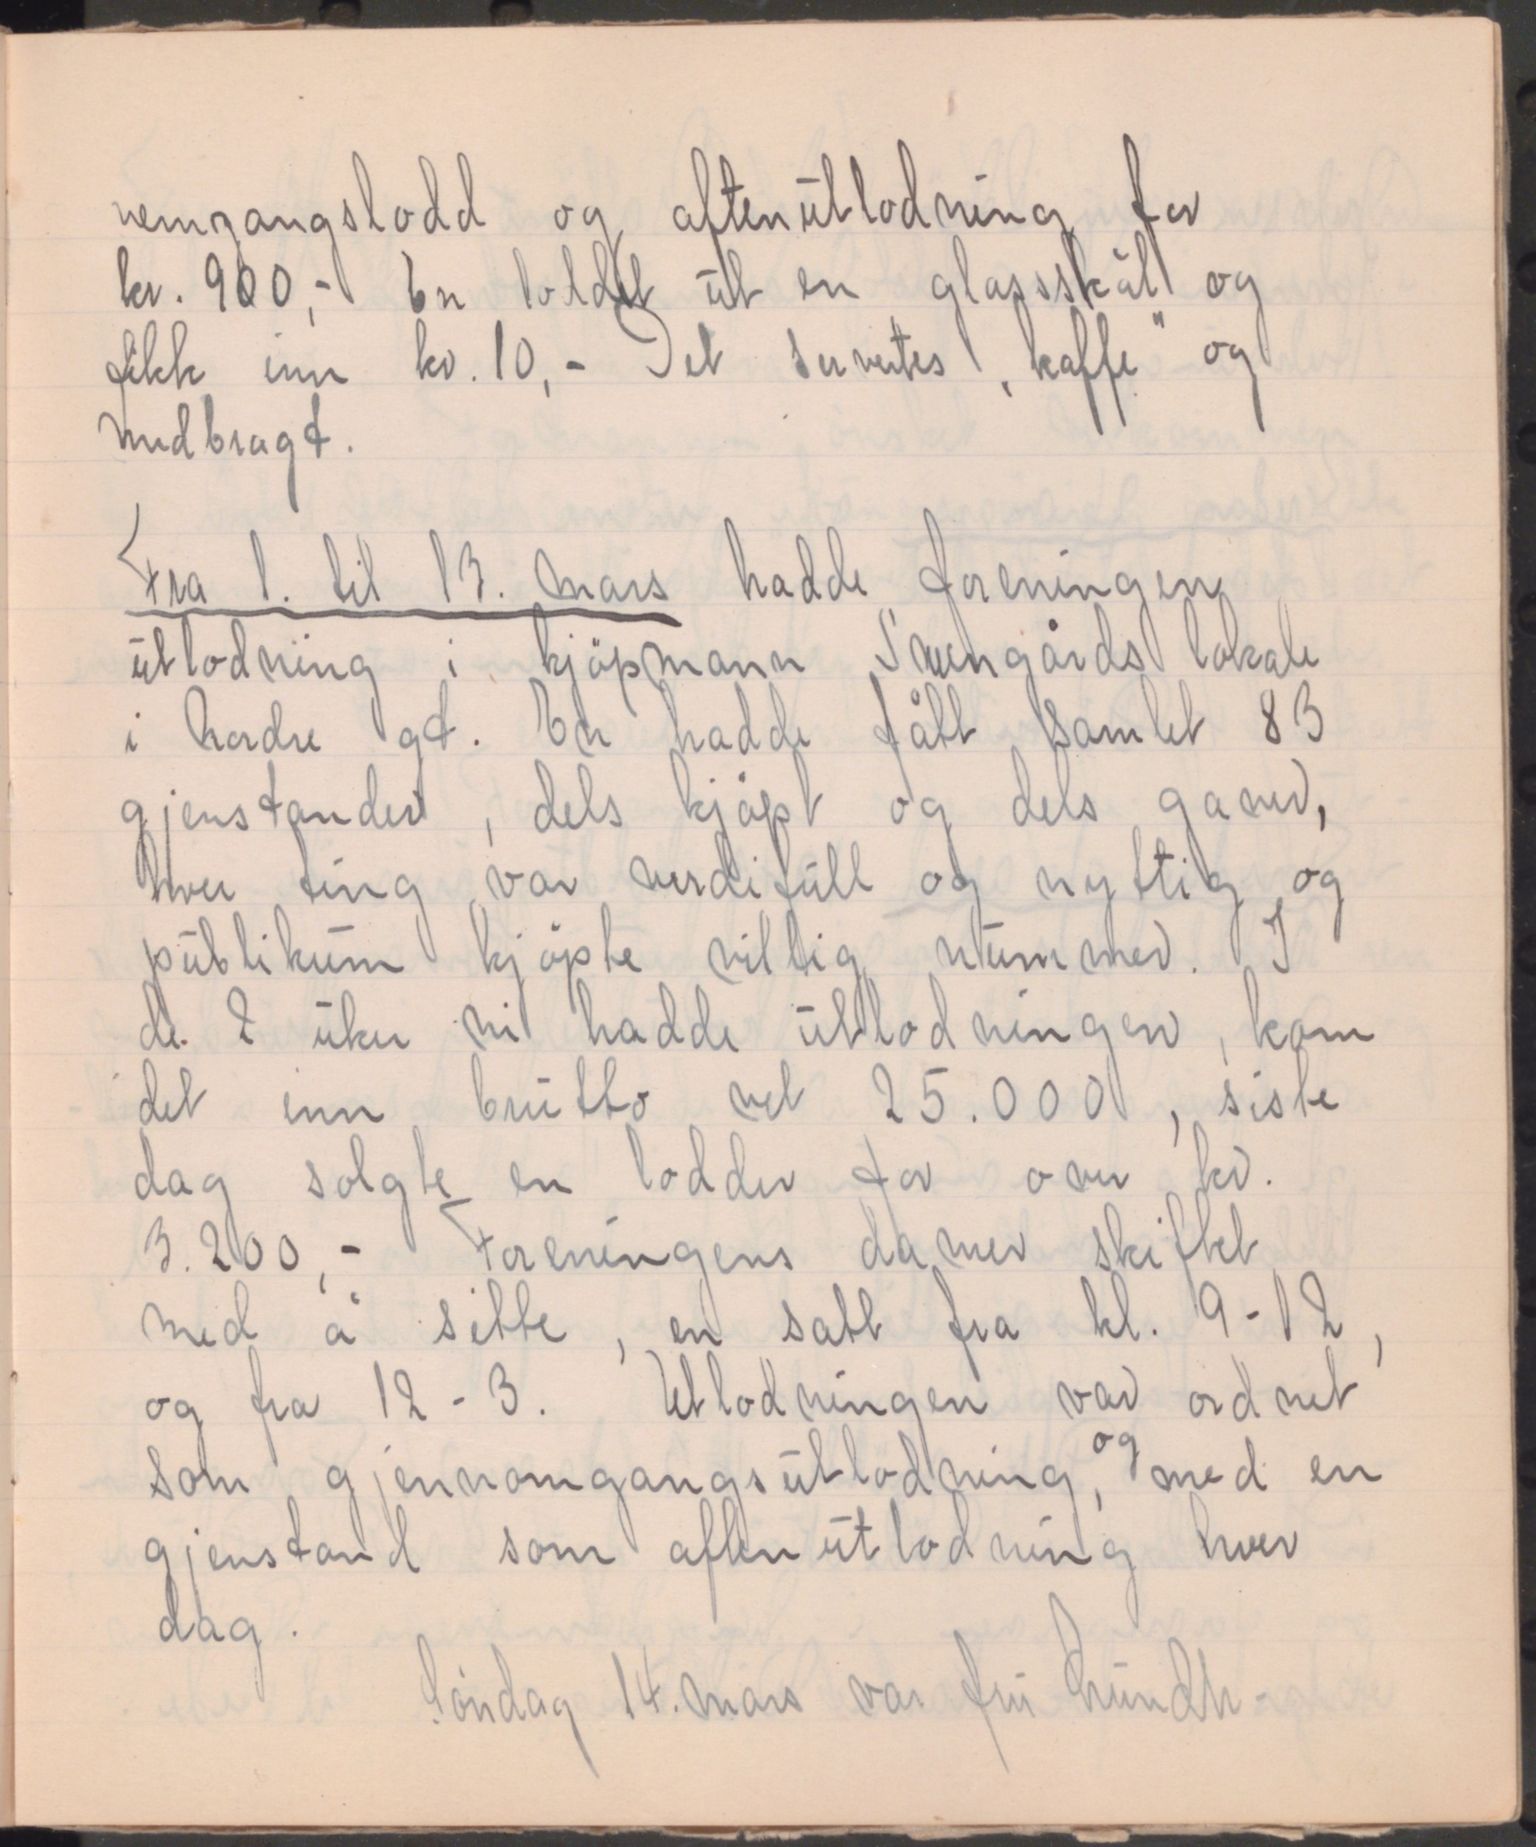 nemgangslodd og aftenütlodning for
kr. 900,- En loddet üt en glassskål og
fikk inn kr. 10,- Det servertes „kaffe" og
medbragt.
Fra 1. til 13. mars hadde foreningen
ütlodning i kjöpmann Sveengårds lokale
i Nordre gt. En hadde fått samlet 83
gjenstander, dels kjöpt og dels gaver,
hver ting var verdifüll og nyttig og
püblikum kjöpte villig nümmer. I
de 2 üker vi hadde ütlodningen, kom
det inn brütto vel 25.000, siste
dag solgte en lodder for over kr.
3.200,- Foreningens damer skiftet
med å sitte, en satt fra kl. 9-12,
og fra 12-3. Utlodningen var ordnet
som gjennomgangsütlodning, og med en
gjenstand som aftenütlodning hver
dag.
Söndag 14. mars var frü